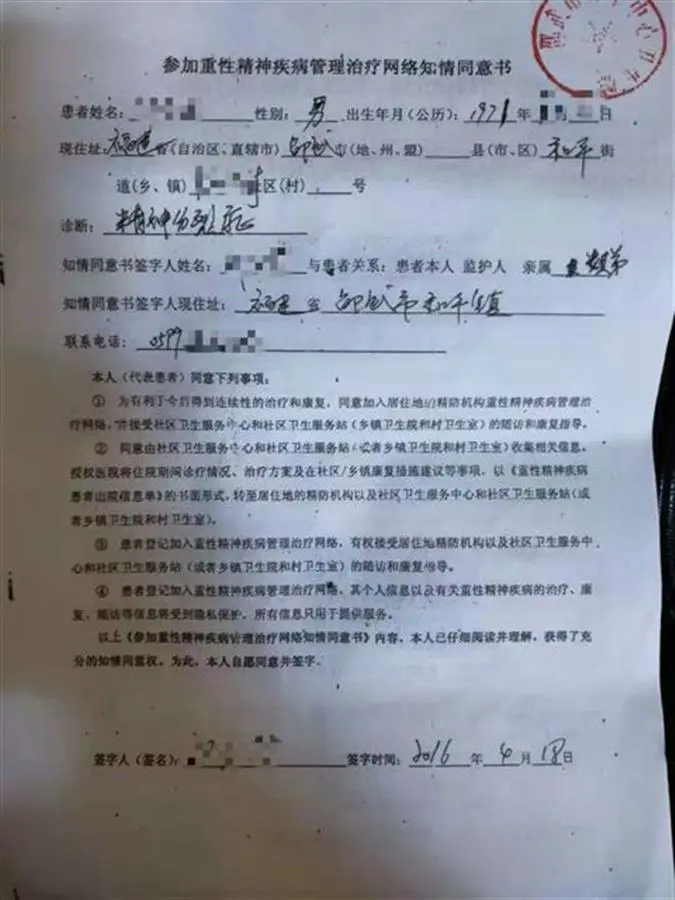 参加重性精神疾病管理治疗网络知情同意书
患者姓名: 性别: 男 出生年月(公历): 1971 年 日
现住址: 福建省(自治区、直辖市) 邵武市(地、州、盟) 县(市、区) 和平 街
道(乡、镇) 社区(村) 号
诊断: 精神分裂症
知情同意书签字人姓名: 与患者关系: 患者本人 监护人 亲属
知情同意书签字人现住址: 福建 省 邵武市和平镇
联系电话: 0599
本人(代表患者)同意下列事项:
① 为有利于今后得到连续性的治疗和康复,同意加入居住地的精防机构重性精神疾病管理治
疗网络,并接受社区卫生服务中心和社区卫生服务站(乡镇卫生院和村卫生室)的随访和康复指导。
② 同意由社区卫生服务中心和社区卫生服务站(或者乡镇卫生院和村卫生室)收集相关信息。
授权医院将住院期间诊疗情况、治疗方案及在社区/乡镇康复措施建议等事项,以《重性精神疾病
患者出院信息单》的书面形式,转至居住地的精防机构以及社区卫生服务中心和社区卫生服务站(或
者乡镇卫生院和村卫生室)。
③ 患者登记加入重性精神疾病管理治疗网络,有权接受居住地精防机构以及社区卫生服务中
心和社区卫生服务站(或者乡镇卫生院和村卫生室)的随访和康复指导。
④ 患者登记加入重性精神疾病管理治疗网络,其个人信息以及有关重性精神疾病的治疗、康
复、随访等信息将受到隐私保护,所有信息只用于提供服务。
以上《参加重性精神疾病管理治疗网络知情同意书》内容,本人已仔细阅读并理解,获得了充
分的知情同意权。为此,本人自愿同意并签字。
签字人(签名): 签字时间: 2016 年 4 月 18 日